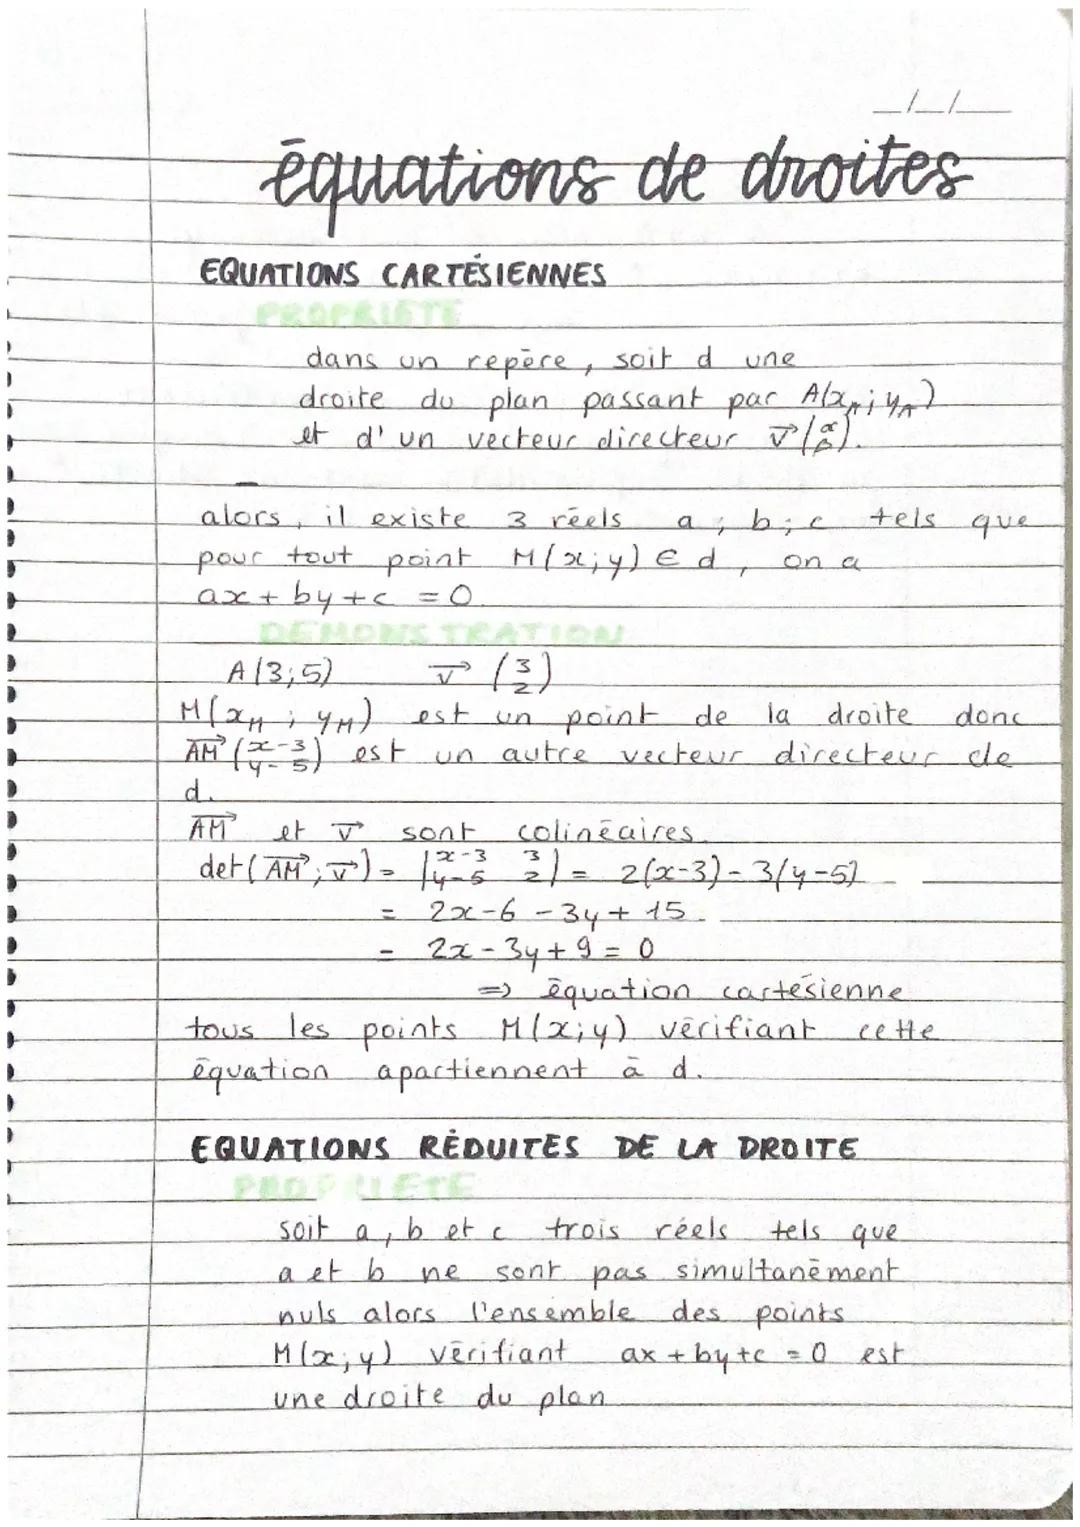 _/_/__
équations de droites
EQUATIONS CARTÉSIENNES
PROPRIETE
dans un repère, soit d une
droite du plan passant par A(x_A; y_A)
et d'un vecteur directeur v⃗(α β).
alors, il existe 3 réels a; b; c tels que
pour tout point M(x;y) ∈ d, on a
ax + by + c = 0.
DEMONSTRATION
A(3;5) v⃗ (3 2)
M(x_M ; y_M) est un point de la droite donc
AM⃗ (x-3 y-5) est un autre vecteur directeur de
d.
AM⃗ et v⃗ sont colinéaires.
det(AM⃗; v⃗) = |x-3 3 y-5 2| = 2(x-3) - 3(y-5)
= 2x-6 - 3y + 15.
= 2x - 3y + 9 = 0
=> équation cartésienne
tous les points M(x;y) vérifiant cette
équation apartiennent à d.
EQUATIONS RÉDUITES DE LA DROITE
PROPRIETE
soit a, b et c trois réels tels que
a et b ne sont pas simultanément
nuls alors l'ensemble des points
M(x;y) vérifiant ax + by + c = 0 est
une droite du plan